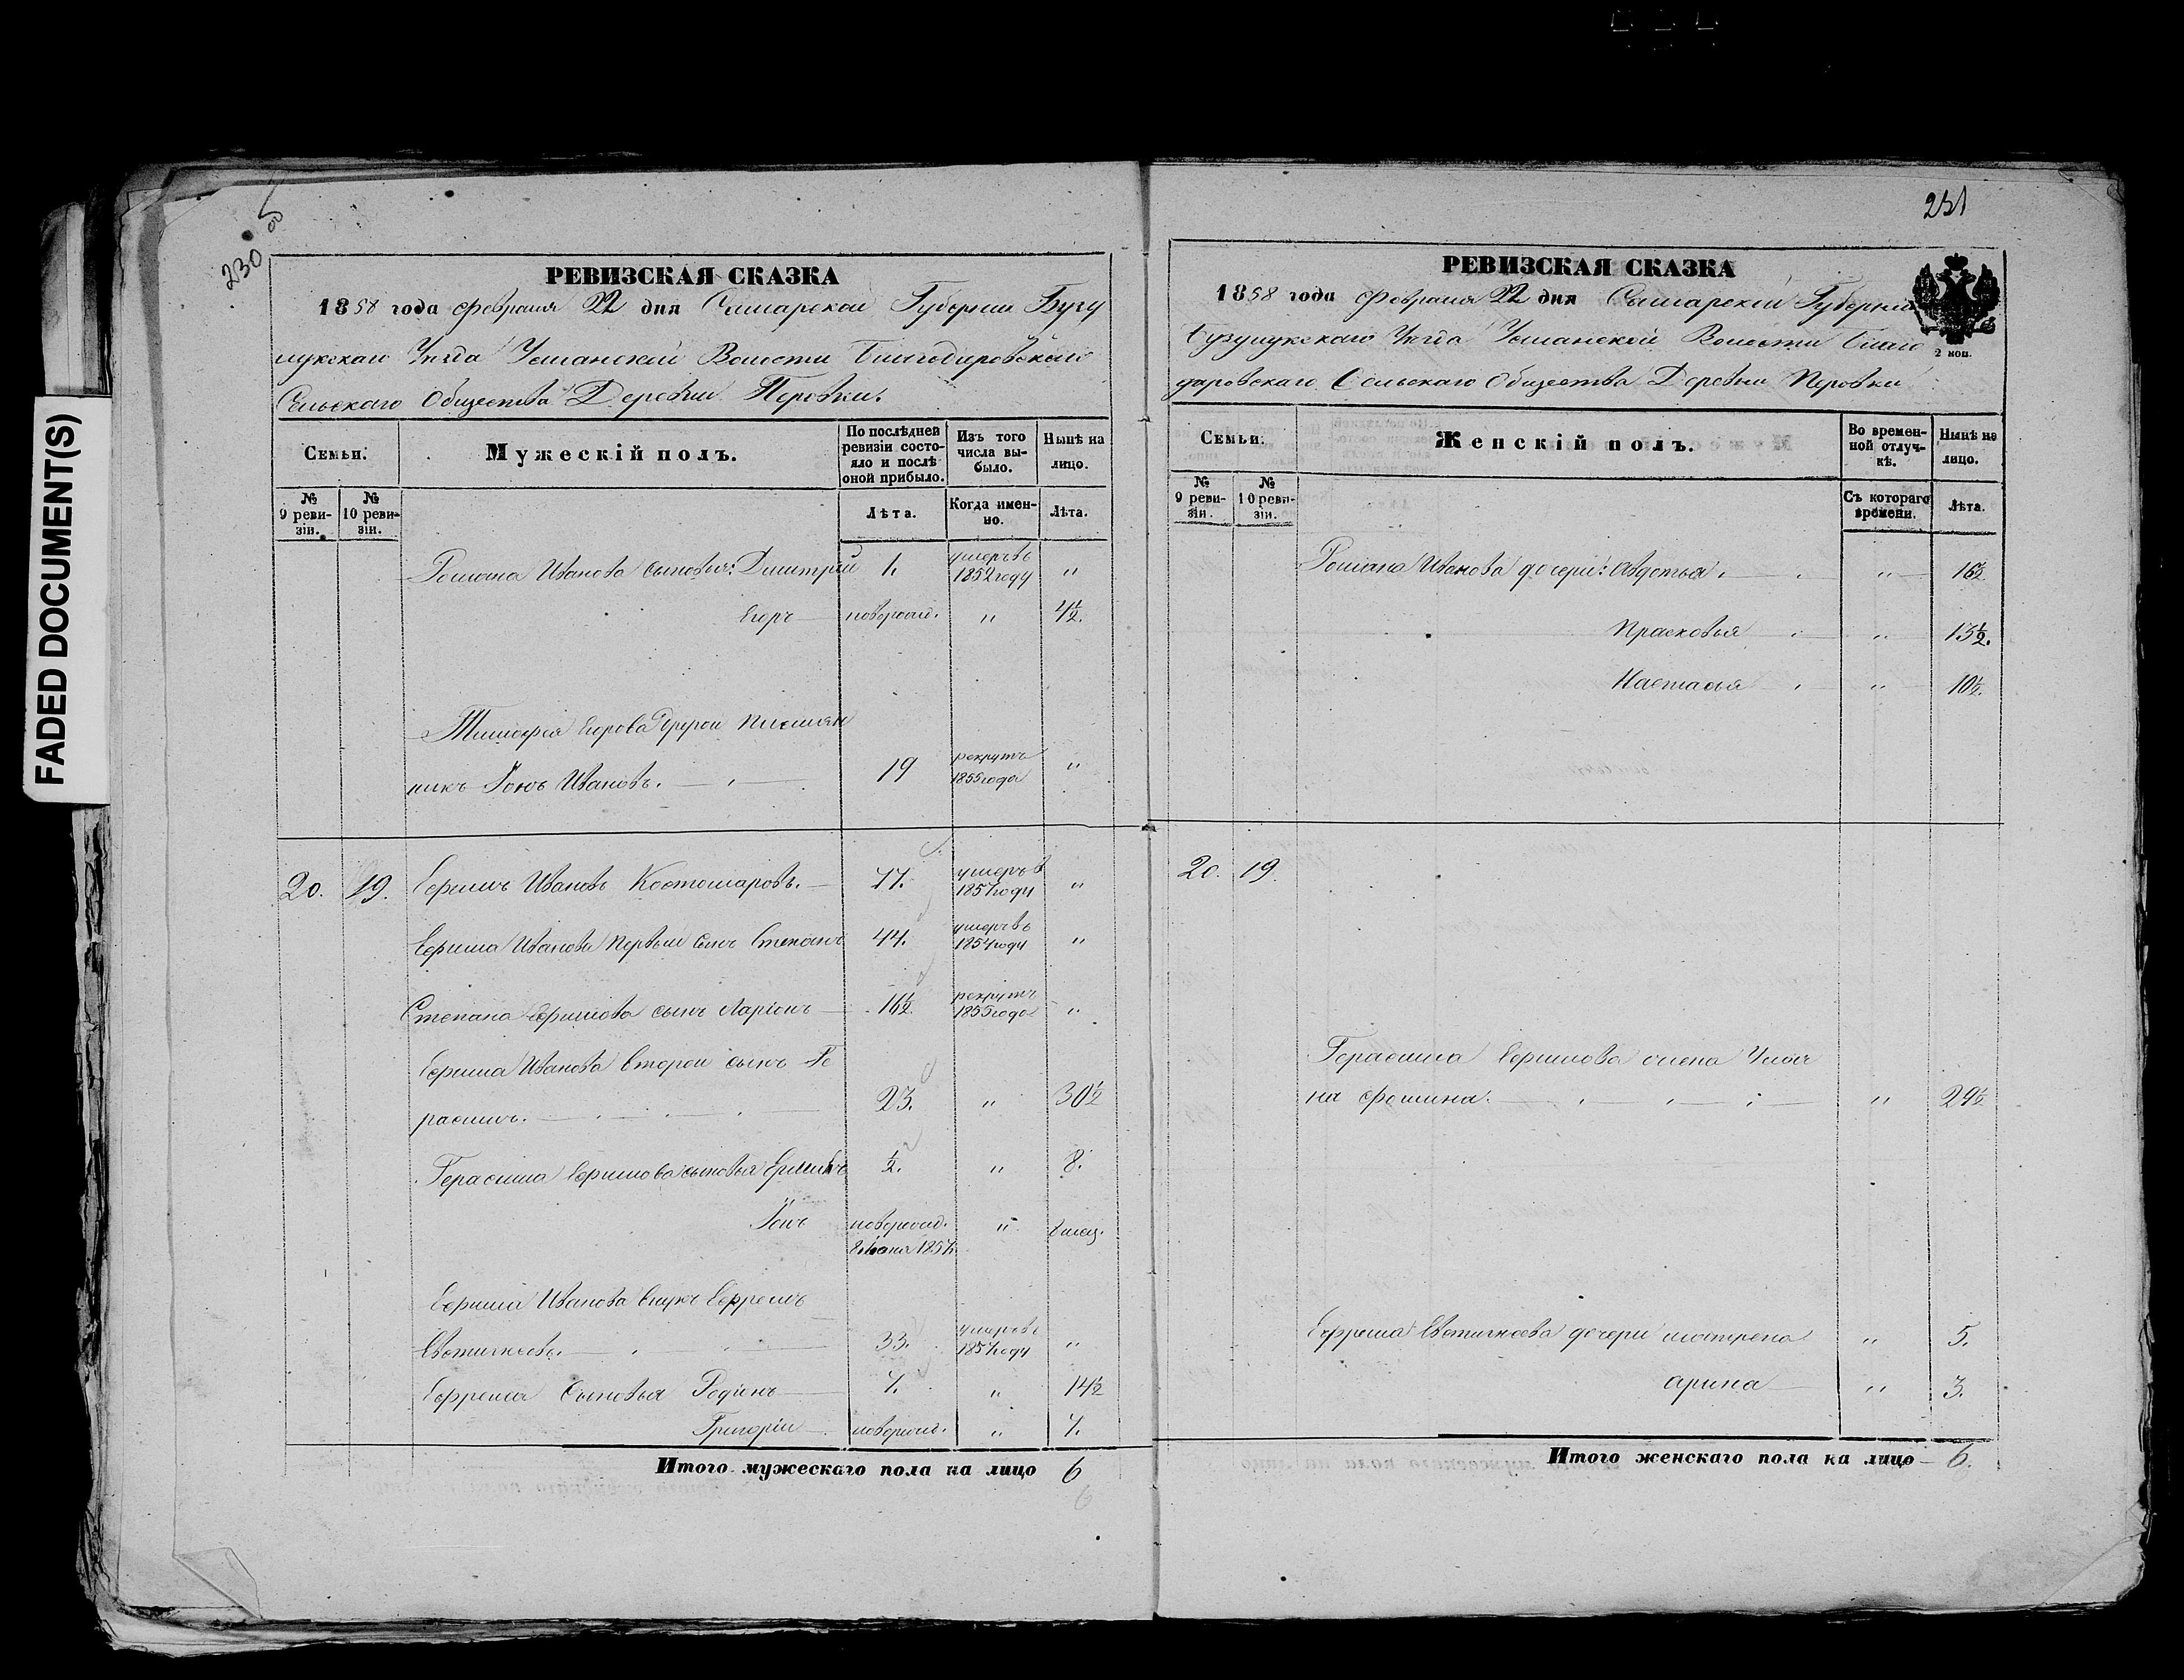 FADED DOCUMENT(S)
230
РЕВИЗСКАЯ СКАЗКА
1858 года Февраля 22 дня Самарской Губернии Бугу
Уезда Волости
Сельскаго Общества Деревни Перовки.
Семьи.
Мужескій полъ.
По послѣдней ревизіи состояло и послѣ оной прибыло.
Изъ того числа выбыло.
Нынѣ на лицо.
№ 9 ревизіи.
№ 10 ревизіи.
Лѣта.
Когда именно.
Лѣта.
Романа Иванова сыновья: Дмитрій 1. умеръ въ 1852 году "
Егоръ новорожд. " 4½.
Тимофея Егорова другой племян
никъ Іонъ Ивановъ. 19 рекрутъ 1855 года "
20. 19. Ефимъ Ивановъ Костомаровъ. 77. умеръ в 1857 году "
Ефима Иванова первый сынъ Степанъ 44. умеръ въ 1854 году "
Степана Ефимова сынъ Ларіонъ 16½ рекрутъ 1855 года "
Ефима Иванова второй сынъ Ге
расимъ. 23. " 30½
Герасима Ефимова сыновья ½. " 8.
новорожд. " 8 мец.
1857.
Ефима Иванова внукъ Ефремъ
33. умеръ въ 1857 году "
Ефрема Сыновья Родіонъ 7. " 14½
Григорій новорожд. " 7.
Итого мужескаго пола на лицо 6
6
251
РЕВИЗСКАЯ СКАЗКА
1858 года Февраля 22 дня Самарскій Губерніи
Уезда Волости Благо
даровскаго Сельскаго Общества Деревни Перовки
2 коп.
Семьи.
Женскій полъ.
Во временной отлучкѣ.
Нынѣ на лицо.
№ 9 ревизіи.
№ 10 ревизіи.
Съ котораго времени.
Лѣта.
Романа Иванова дочери: Авдотья. " 16½
Прасковья " 13½.
Настасья " 10½.
20. 19.
Герасима Ефимова жена Улья
на Фомина. " 29½
Ефрема дочери Матрена " 5.
Арина " 3.
Итого женскаго пола на лицо 6.